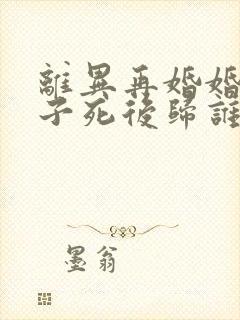 離異再婚婚
子死後歸誰
墨翁